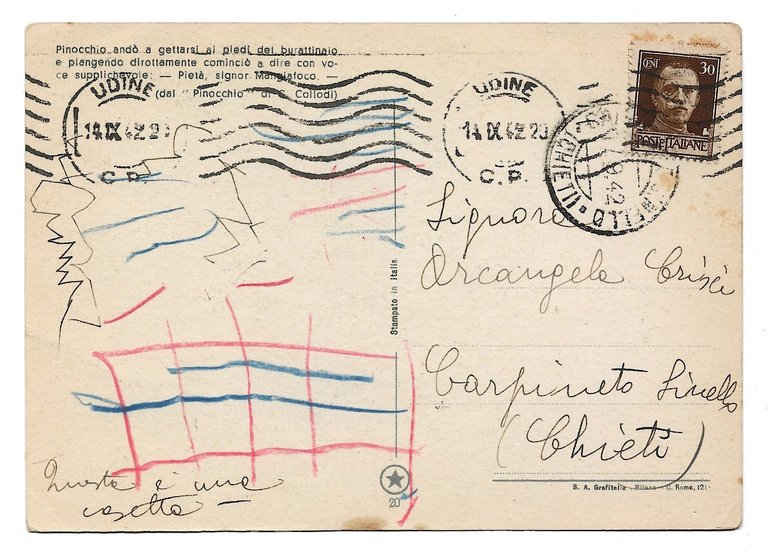 Pinocchio andò a gettarsi ai piedi del burattinaio
e piangendo dirottamente cominciò a dire con vo-
ce supplichevole: — Pietà, signor Mangiafoco. —
(dal "Pinocchio" di C. Collodi)
UDINE
14.IX 42.20
C.P.
UDINE
14.IX 42.20
C.P.
CENT 30
POSTE ITALIANE
(CHIETI)
9.42
Signora
Arcangela Crisci
Carpineto Sinello
(Chieti)
Stampato in Italia
Questa è una
casetta —
20
S. A. Grafitalia - Milano - C. Roma, 121